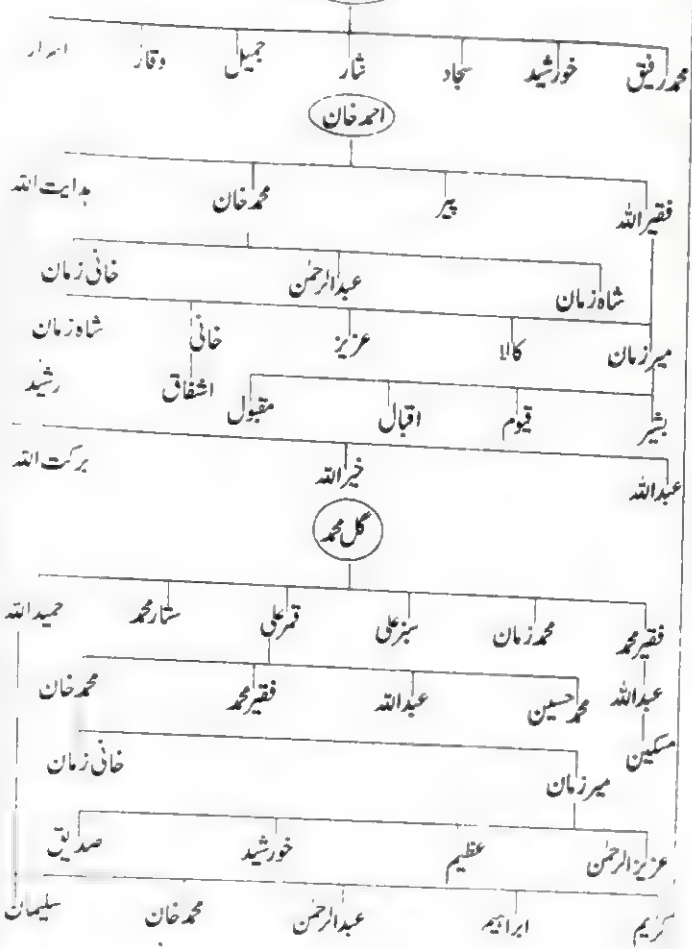 محمد رفیق خورشید سجاد نثار جمیل وقار اسرار
احمد خان
فقیر اللہ پیر محمد خان ہدایت اللہ
شاہ زمان عبدالرحمٰن خانی زمان
میر زمان کالا عزیز خانی شاہ زمان
بشیر قیوم اقبال مقبول اشفاق رشید
عبداللہ خیر اللہ برکت اللہ
گل محمد
فقیر محمد محمد زمان سبز علی قمر علی ستار محمد حمید اللہ
عبداللہ محمد حسین عبداللہ فقیر محمد محمد خان
مسکین میر زمان خانی زمان
عزیز الرحمٰن عظیم خورشید صدیق
کریم ابراہیم عبدالرحمٰن محمد خان سلیمان